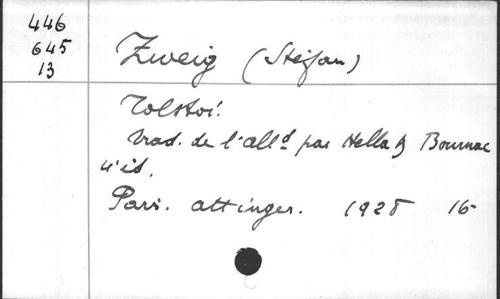 446
645
13
Zweig (Stefan)
Tolstoï.
trad. de l'alld par Hella & Bournac
4e éd.
Paris. attinger. 1928 16-